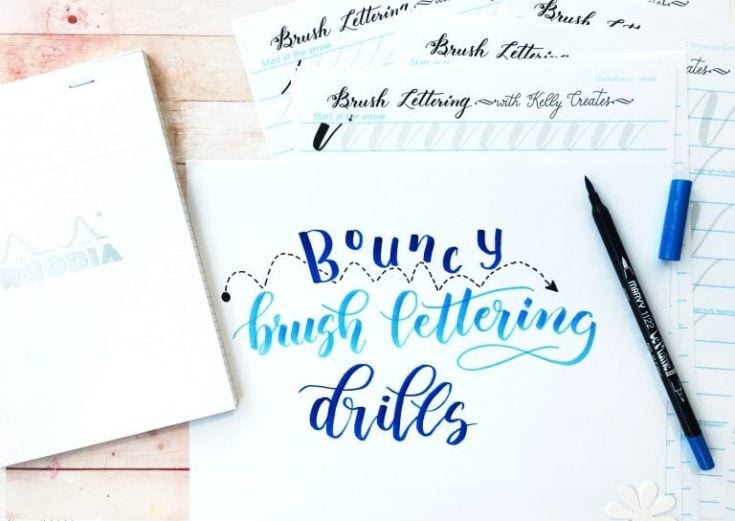 Brush Lettering
Start at the arrow
Brush Lettering
Brush
Understroke - small
Brush Lettering with Kelly Creates
Start at the arrow
RHODIA
Bouncy
brush lettering
drills
MARVY 1122